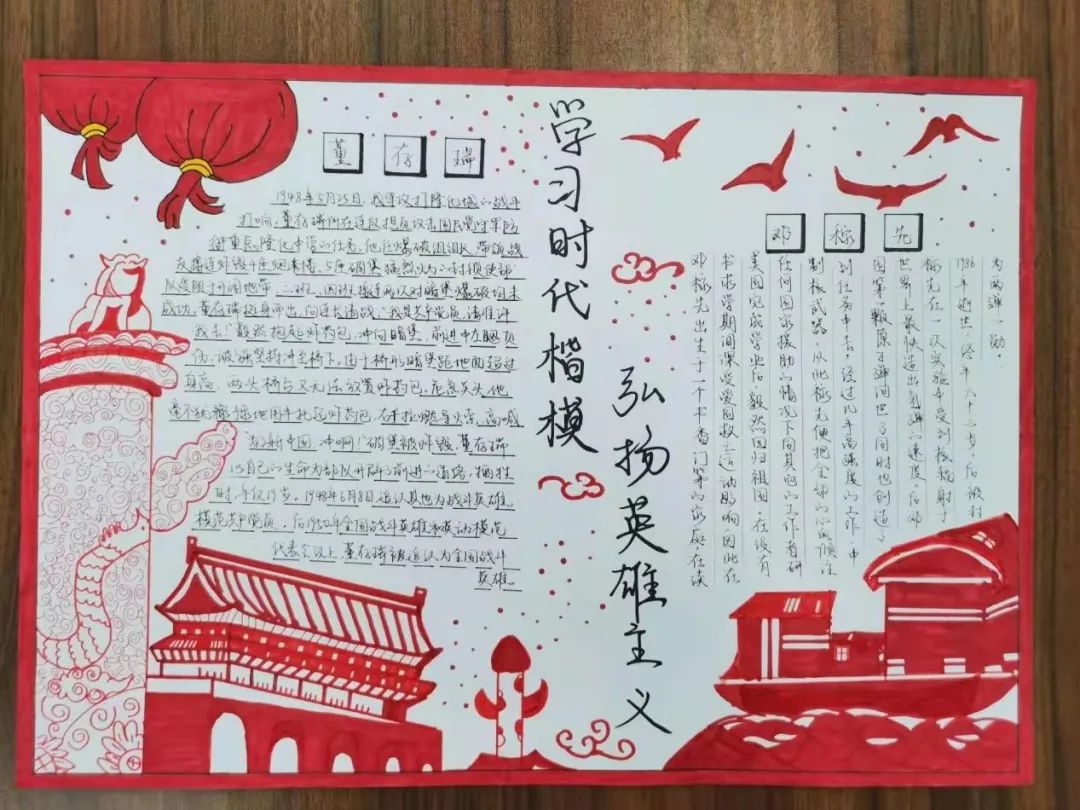 学习时代楷模
弘扬英雄主义
董存瑞
1948年5月25日,我军攻打隆化城的战斗
打响,董存瑞所在连队担负攻击国民党守军防
御重点隆化中学的任务,他任爆破组组长,带领战
友接连炸毁4座炮楼、5座碉堡
队受阻于开阔地带,二班、四班接连两次对暗堡爆破均未
成功。董存瑞挺身而出,向连长请战:"我是共产党员,请准许
我去!"毅然抱起炸药包,冲向暗堡,前进中左腿负
伤,顽强坚持冲至桥下。由于桥形暗堡距地面超过
身高,两头桥台又无法放置炸药包,危急关头他
毫不犹豫 地用左手托起炸药包,右手拉燃导火索,高喊
新中国,冲啊!碉堡被炸毁,董存瑞
以自己的生命为部队开辟了前进的道路,牺牲
时,年仅19岁。1948年6月8日追认其他为战斗英雄、
模范共产党员,后1950年全国战斗英雄和劳动模范
代表会议上,董存瑞被追认为全国战斗
英雄。
邓稼先
邓稼先出生于一个书香门第的家庭在读
书求学期间深受爱国救亡运动影响因此在
美国完成学业后,毅然回归祖国。在没有
任何国家援助的情况下同其它的工作者研
制核武器,从此稼先便把全部的心血倾注
到任务中去,经过几年高强度的工作,中
国第一颗原子弹问世了同时也创造了
世界上最快造出氢弹的速度,后邓
稼先在一次实验中受到核辐射于
1986年逝世,终年六十二岁,后被封
为两弹一勋。